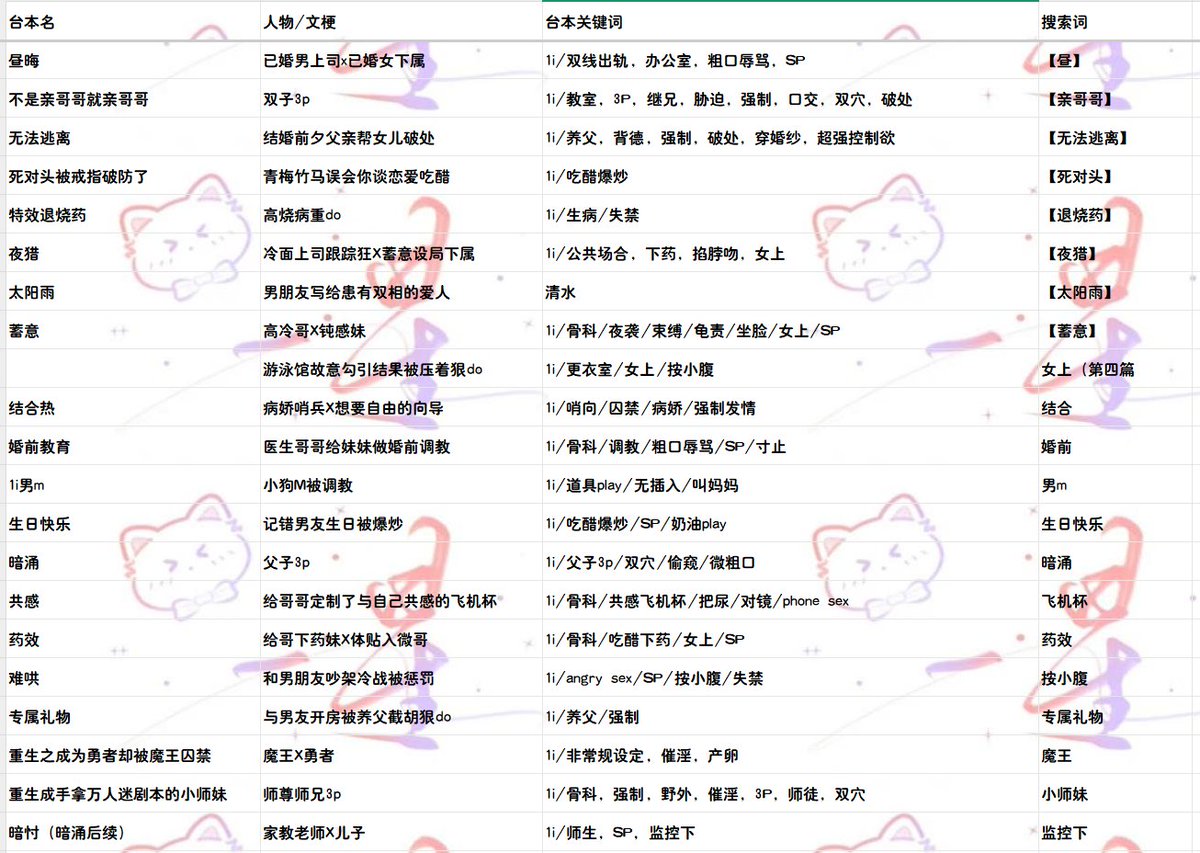 台本名 人物/文梗 台本关键词 搜索词
昼晦 已婚男上司x已婚女下属 1i/双线出轨，办公室，粗口辱骂，SP 【昼】
不是亲哥哥就亲哥哥 双子3p 1i/教室，3P，继兄，胁迫，强制，口交，双穴，破处 【亲哥哥】
无法逃离 结婚前夕父亲帮女儿破处 1i/养父，背德，强制，破处，穿婚纱，超强控制欲 【无法逃离】
死对头被戒指破防了 青梅竹马误会你谈恋爱吃醋 1i/吃醋爆炒 【死对头】
特效退烧药 高烧病重do 1i/生病/失禁 【退烧药】
夜猎 冷面上司跟踪狂X蓄意设局下属 1i/公共场合，下药，掐脖吻，女上 【夜猎】
太阳雨 男朋友写给患有双相的爱人 清水 【太阳雨】
蓄意 高冷哥X钝感妹 1i/骨科/夜袭/束缚/龟责/坐脸/女上/SP 【蓄意】
游泳馆故意勾引结果被压着狠do 1i/更衣室/女上/按小腹 女上（第四篇
结合热 病娇哨兵X想要自由的向导 1i/哨向/囚禁/病娇/强制发情 结合
婚前教育 医生哥哥给妹妹做婚前调教 1i/骨科/调教/粗口辱骂/SP/寸止 婚前
1i男m 小狗M被调教 1i/道具play/无插入/叫妈妈 男m
生日快乐 记错男友生日被爆炒 1i/吃醋爆炒/SP/奶油play 生日快乐
暗涌 父子3p 1i/父子3p/双穴/偷窥/微粗口 暗涌
共感 给哥哥定制了与自己共感的飞机杯 1i/骨科/共感飞机杯/把尿/对镜/phone sex 飞机杯
药效 给哥下药妹X体贴入微哥 1i/骨科/吃醋下药/女上/SP 药效
难哄 和男朋友吵架冷战被惩罚 1i/angry sex/SP/按小腹/失禁 按小腹
专属礼物 与男友开房被养父截胡狠do 1i/养父/强制 专属礼物
重生之成为勇者却被魔王囚禁 魔王X勇者 1i/非常规设定，催淫，产卵 魔王
重生成手拿万人迷剧本的小师妹 师尊师兄3p 1i/骨科，强制，野外，催淫，3P，师徒，双穴 小师妹
暗忖（暗涌后续） 家教老师X儿子 1i/师生，SP，监控下 监控下